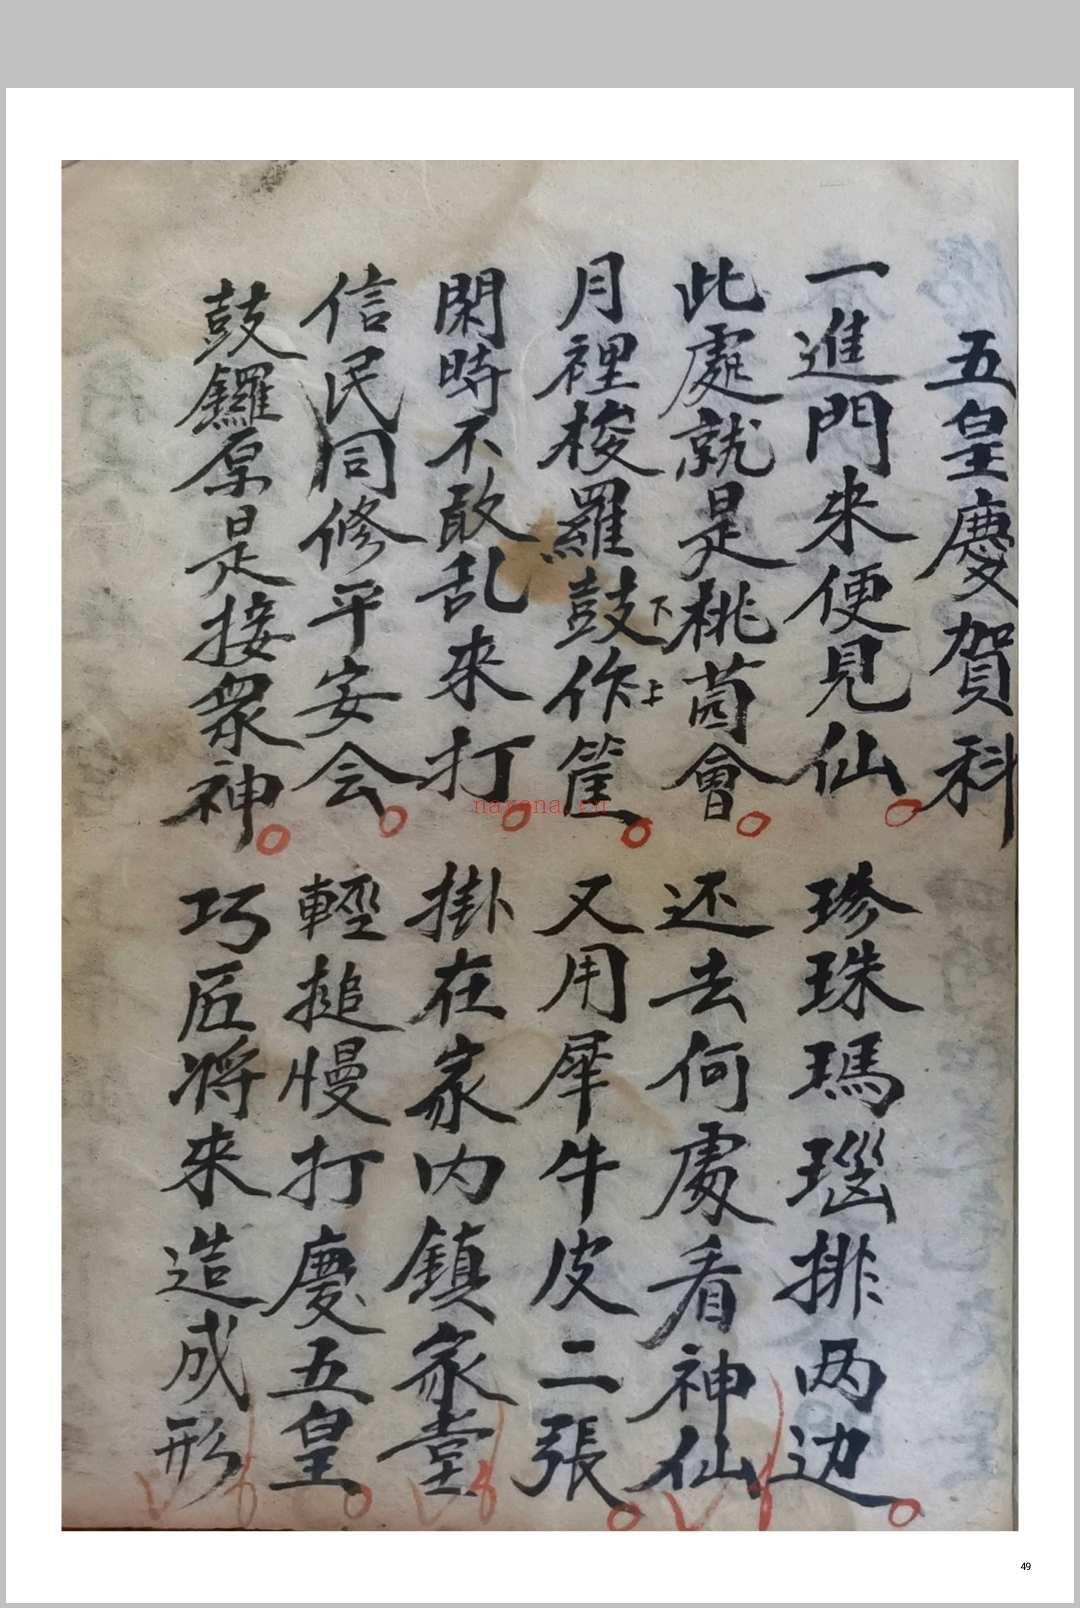 五皇慶賀科
一進門来便見仙珍珠瑪瑙排两边
此處就是桃茵會还去何處看神仙
月裡梭羅鼓作筐又用犀牛皮二張
下上
閑時不敢乱来打掛在家内鎮家堂
信民同修平安会輕搥慢打慶五皇
鼓鑼原是接衆神巧匠將来造成形
nayona.cn
49